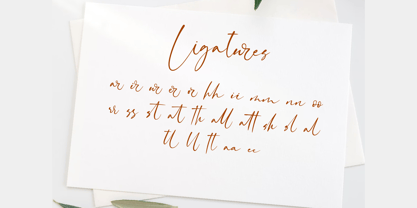 Ligatures
ar ir ur er or hh ii mm nn oo
rr ss st at th all att sh sl al
tl ll tt aa ee